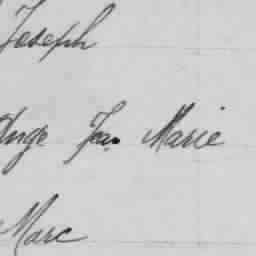 Joseph
Ange Jean Marie
Marc